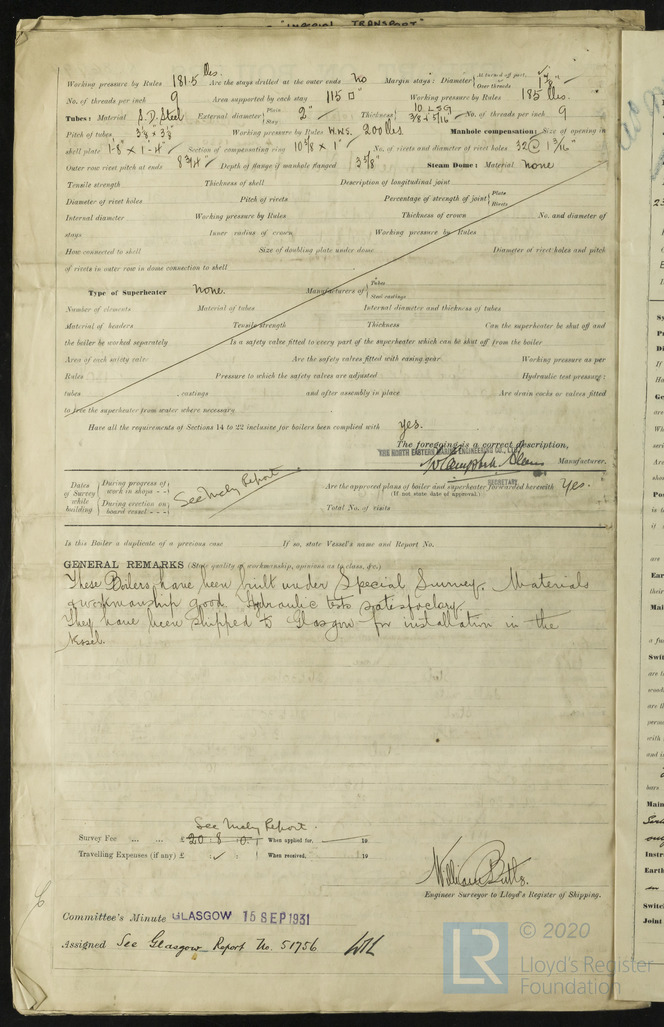 "IMPERIAL TRANSPORT"
Working pressure by Rules 181.5 lbs. Are the stays drilled at the outer ends No Margin stays: Diameter { At turned off part, or Over threads 1 7/8" ✓
No. of threads per inch 9 Area supported by each stay 115 □" Working pressure by Rules 185 lbs.
Tubes: Material S.D. Steel External diameter { Plain Stay 2" Thickness { 10 LSG 3/8 & 5/16" No. of threads per inch 9
Pitch of tubes 3 1/8 × 3 1/8" Working pressure by Rules H.N.S. 200 lbs Manhole compensation: Size of opening in
shell plate 1'-8" × 1'-4" Section of compensating ring 10 5/8 × 1" No. of rivets and diameter of rivet holes 32 @ 1 3/16"
Outer row rivet pitch at ends 8 3/4" Depth of flange if manhole flanged 3 5/8" Steam Dome: Material None
Tensile strength Thickness of shell Description of longitudinal joint
Diameter of rivet holes Pitch of rivets Percentage of strength of joint { Plate Rivets
Internal diameter Working pressure by Rules Thickness of crown No. and diameter of
stays Inner radius of crown Working pressure by Rules
How connected to shell Size of doubling plate under dome Diameter of rivet holes and pitch
of rivets in outer row in dome connection to shell
Type of Superheater None. Manufacturers of { Tubes Steel castings
Number of elements Material of tubes Internal diameter and thickness of tubes
Material of headers Tensile strength Thickness Can the superheater be shut off and
the boiler be worked separately Is a safety valve fitted to every part of the superheater which can be shut off from the boiler
Area of each safety valve Are the safety valves fitted with easing gear Working pressure as per
Rules Pressure to which the safety valves are adjusted Hydraulic test pressure:
tubes castings and after assembly in place Are drain cocks or valves fitted
to free the superheater from water where necessary
Have all the requirements of Sections 14 to 22 inclusive for boilers been complied with yes.
The foregoing is a correct description,
THE NORTH EASTERN MARINE ENGINEERING CO., LTD.
Manufacturer.
SECRETARY
Dates of Survey while building { During progress of work in shops - - During erection on board vessel - - - See Mchy Report
Are the approved plans of boiler and superheater forwarded herewith Yes.
(If not state date of approval.)
Total No. of visits
Is this Boiler a duplicate of a previous case If so, state Vessel's name and Report No.
GENERAL REMARKS (State quality of workmanship, opinions as to class, &c.)
These Boilers have been built under Special Survey. Materials
& workmanship good. Hydraulic tests satisfactory.
They have been shipped to Glasgow for installation in the
Vessel.
See Mchy Report.
Survey Fee ... ... £ 20 : 8 : 0 : When applied for, 19
Travelling Expenses (if any) £ ✓ : : When received, 19
William Butts.
Engineer Surveyor to Lloyd's Register of Shipping.
Committee's Minute GLASGOW 15 SEP 1931
Assigned See Glasgow Report No. 51756
© 2020
LR Lloyd's Register
Foundation